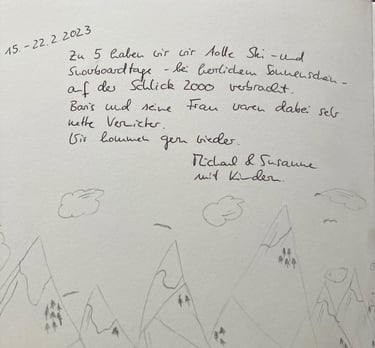 15.-22.2.2023
Zu 5 haben wir wir tolle Ski- und
Snowboardtage - bei herrlichem Sonnenschein -
auf der Schlick 2000 verbracht.
Boris und seine Frau waren dabei sehr
nette Vermieter.
Wir kommen gern wieder.
Michael & Susanne
mit Kindern.